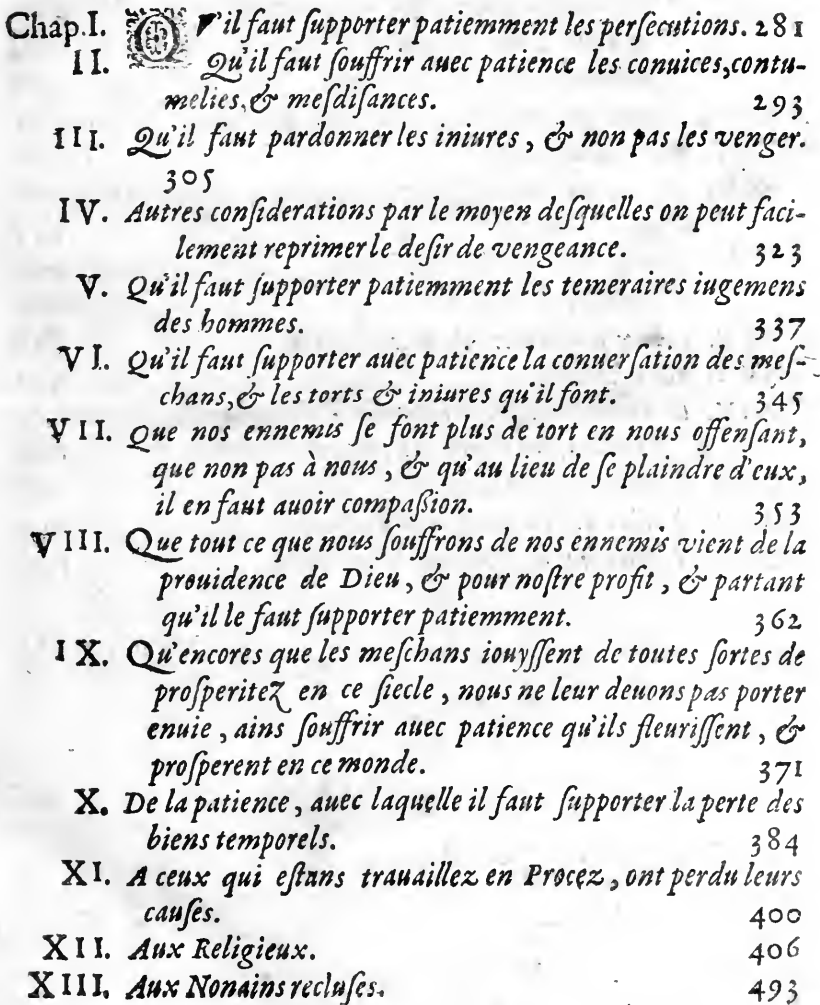 Chap.I. QV'il faut ſupporter patiemment les perſecutions. 281
II. Qu'il faut ſouffrir auec patience les conuices,contu-
melies,& meſdiſances. 293
III. Qu'il faut pardonner les iniures, & non pas les venger.
305
IV. Autres conſiderations par le moyen deſquelles on peut faci-
lement reprimer le deſir de vengeance. 323
V. Qu'il faut ſupporter patiemment les temeraires iugemens
des hommes. 337
VI. Qu'il faut ſupporter auec patience la conuerſation des meſ-
chans,& les torts & iniures qu'il font. 345
VII. Que nos ennemis ſe font plus de tort en nous offenſant,
que non pas à nous, & qu'au lieu de ſe plaindre d'eux,
il en faut auoir compaßion. 353
VIII. Que tout ce que nous ſouffrons de nos ennemis vient de la
prouidence de Dieu, & pour noſtre profit, & partant
qu'il le faut ſupporter patiemment. 362
IX. Qu'encores que les meſchans iouyſſent de toutes ſortes de
proſperitez en ce ſiecle, nous ne leur deuons pas porter
enuie, ains ſouffrir auec patience qu'ils fleuriſſent, &
proſperent en ce monde. 371
X. De la patience, auec laquelle il faut ſupporter la perte des
biens temporels. 384
XI. A ceux qui eſtans trauaillez en Procez, ont perdu leurs
cauſes. 400
XII. Aux Religieux. 406
XIII. Aux Nonains recluſes. 493